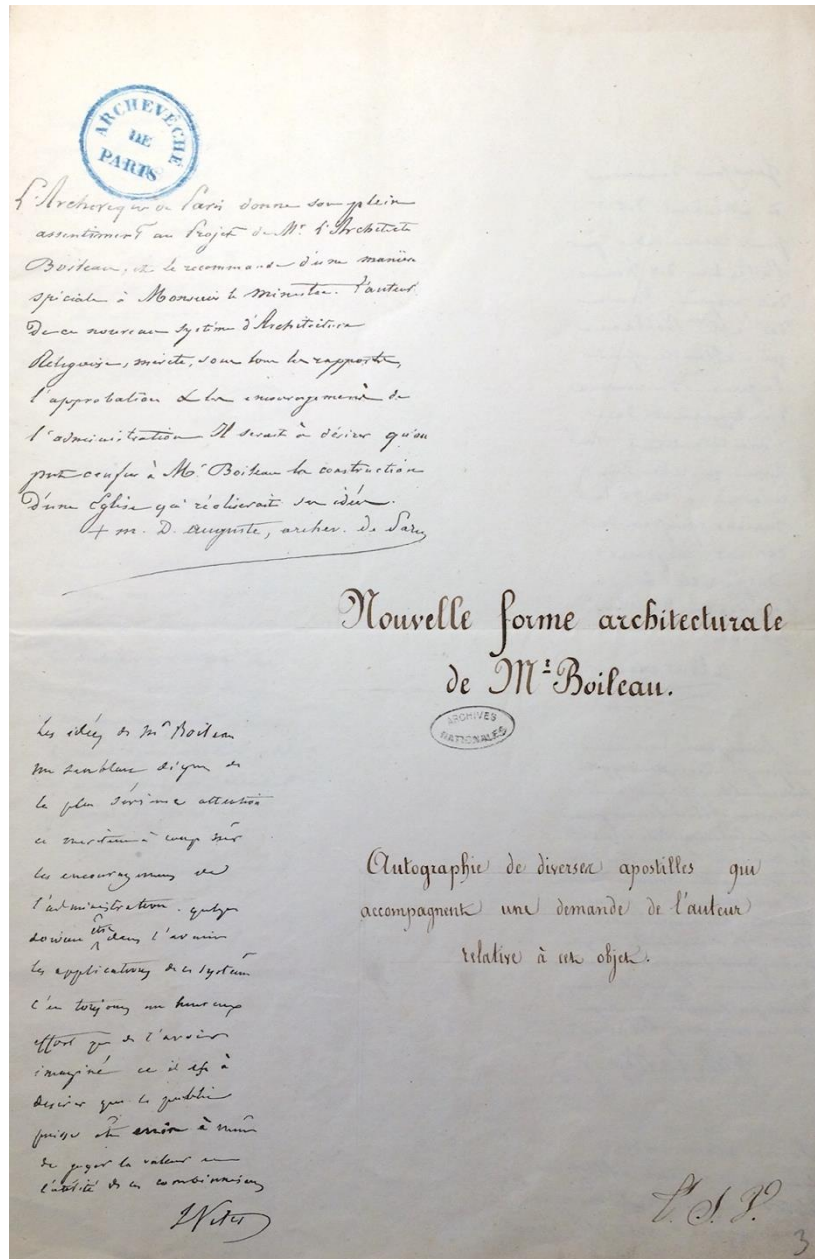 ARCHEVÊCHÉ
DE
PARIS
L'Archevêque de Paris donne son plein
assentiment au Projet de Mr. L'Architecte
Boileau, et le recommande d'une manière
spéciale à Monsieur le ministre. l'auteur
De ce nouveau système d'Architecture
Religieuse, mérite, sous tous les rapports,
l'approbation & les encouragements de
l'administration Il serait à désirer qu'on
put confier à Mr. Boileau la construction
d'une Eglise qui réaliserait son idée.
+ m. D. auguste, archev. de Paris
Nouvelle forme architecturale
de Mr. Boileau.
ARCHIVES
NATIONALES
Les idées de Mr Boileau
me semblent dignes de
la plus sérieuse attention
et méritent à coup sûr
les encouragemens de
l'administration. quelques
doivent être dans l'avenir
les applications de ce système
c'est toujours un heureux
effort que de l'avoir
imaginé et il est à
désirer que le public
puisse être à même
de juger la valeur et
l'utilité de ces combinaisons
Autographie de diverses apostilles qui
accompagnent une demande de l'auteur
relative à cet objet.
3